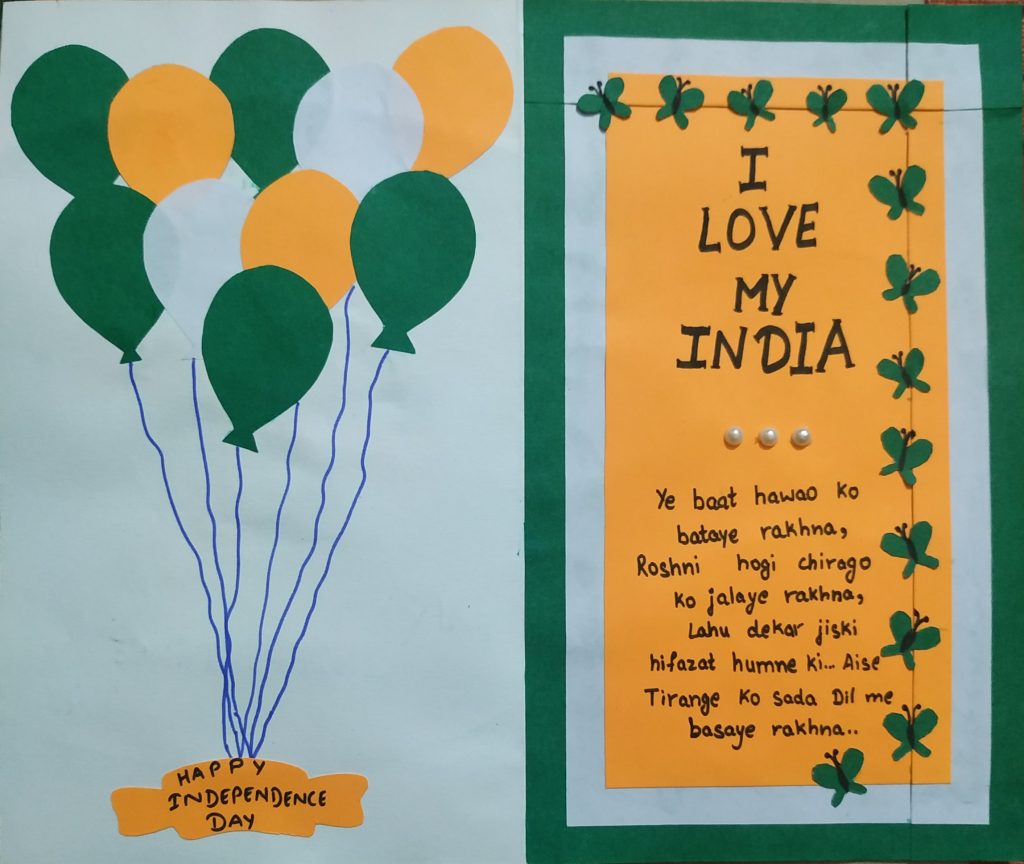 HAPPY
INDEPENDENCE
DAY
I
LOVE
MY
INDIA
Ye baat hawao ko
bataye rakhna,
Roshni hogi chirago
ko jalaye rakhna,
Lahu dekar jiski
hifazat humne ki... Aise
Tirange ko sada Dil me
basaye rakhna..